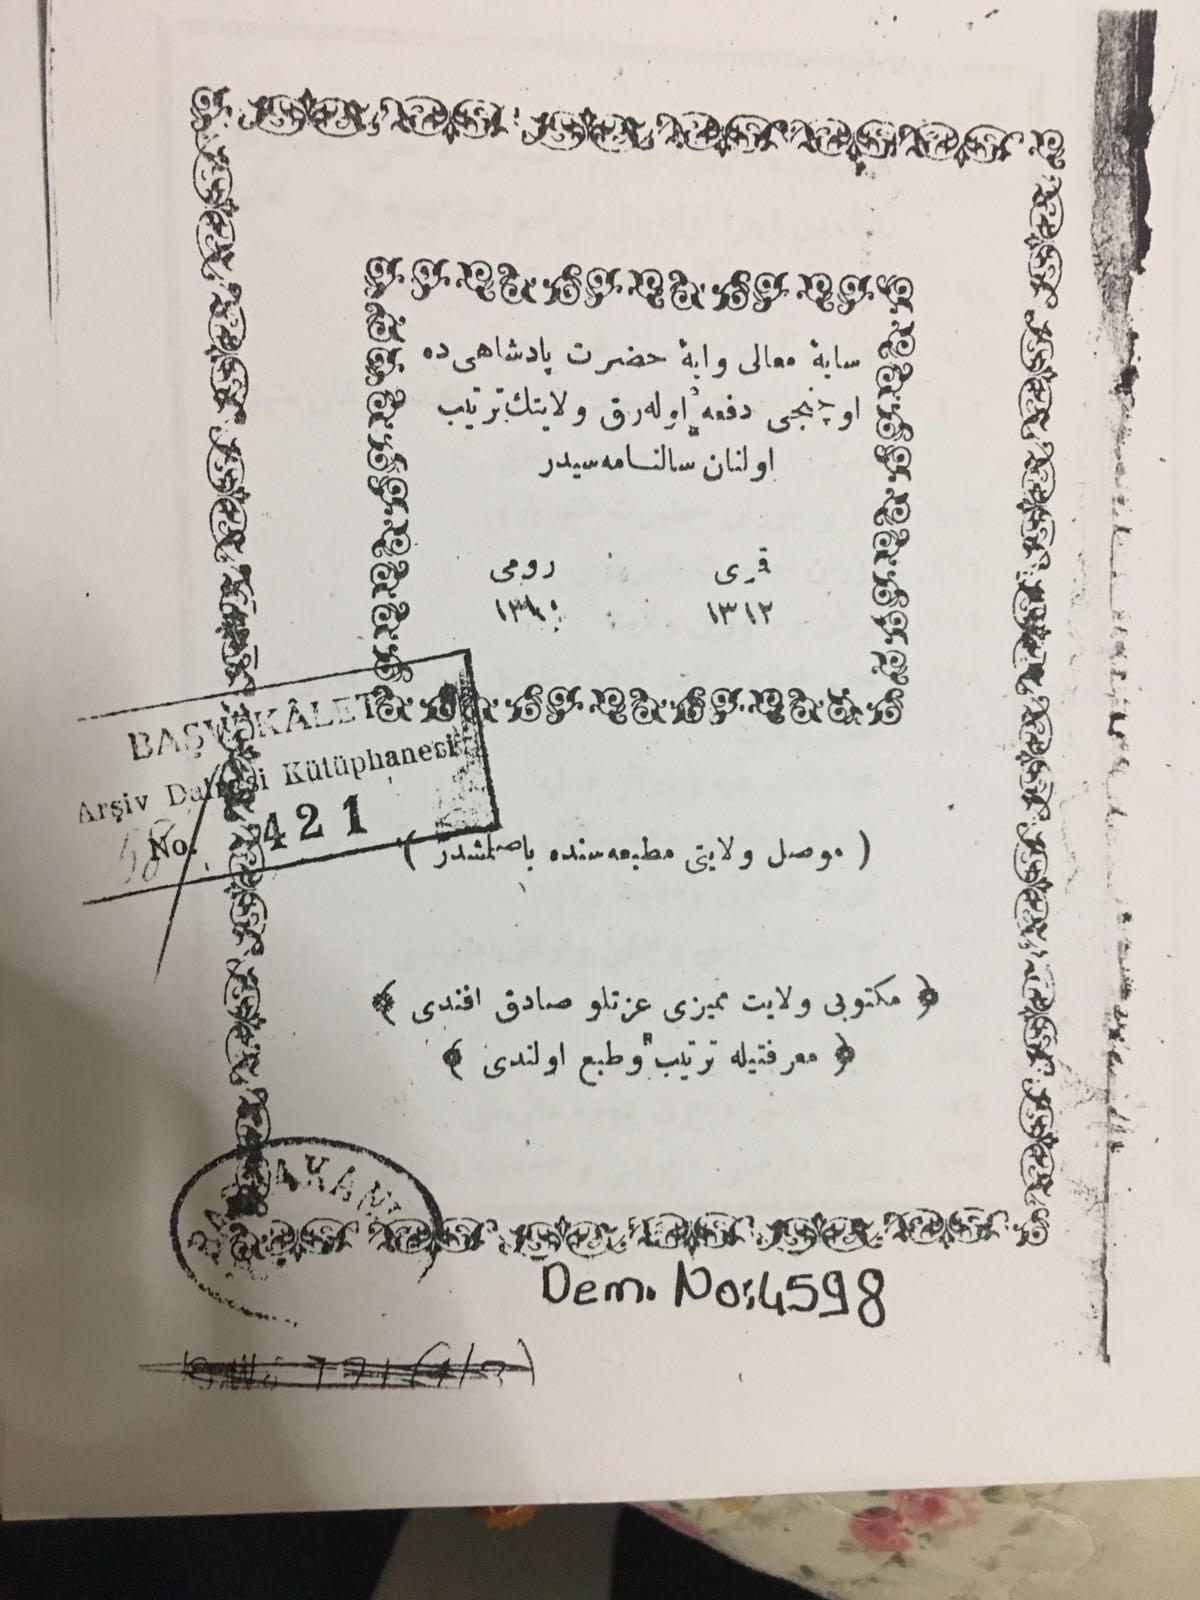 سایهٔ معالی وایهٔ حضرت پادشاهی‌ده
اوچنجی دفعه اوله‌رق ولایتك ترتیب
اولنان سالنامه‌سیدر
قمری رومی
١٣١٢ ١٣١٠
BAŞVEKÂLET
Arşiv Dairesi Kütüphanesi
No. 421
( موصل ولایتی مطبعه‌سنده باصلمشدر )
﴿ مکتوبی ولایت ممیزی عزتلو صادق افندی ﴾
﴿ معرفتیله ترتیب وطبع اولندی ﴾
Dem. No:4598